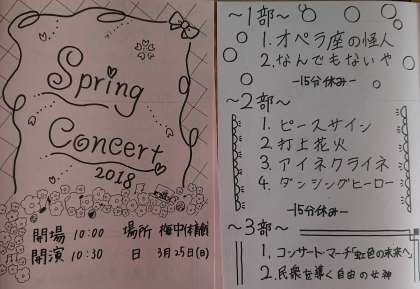 Spring
Concert
2018
開場 10:00 場所 梅中体育館
開演 10:30 日 3月25日(日)
～1部～
1. オペラ座の怪人
2. なんでもないや
ー15分休みー
～2部～
1. ピースサイン
2. 打上花火
3. アイネクライネ
4. ダンシングヒーロー
ー15分休みー
～3部～
1. コンサートマーチ「虹色の未来へ」
2. 民衆を導く自由の女神